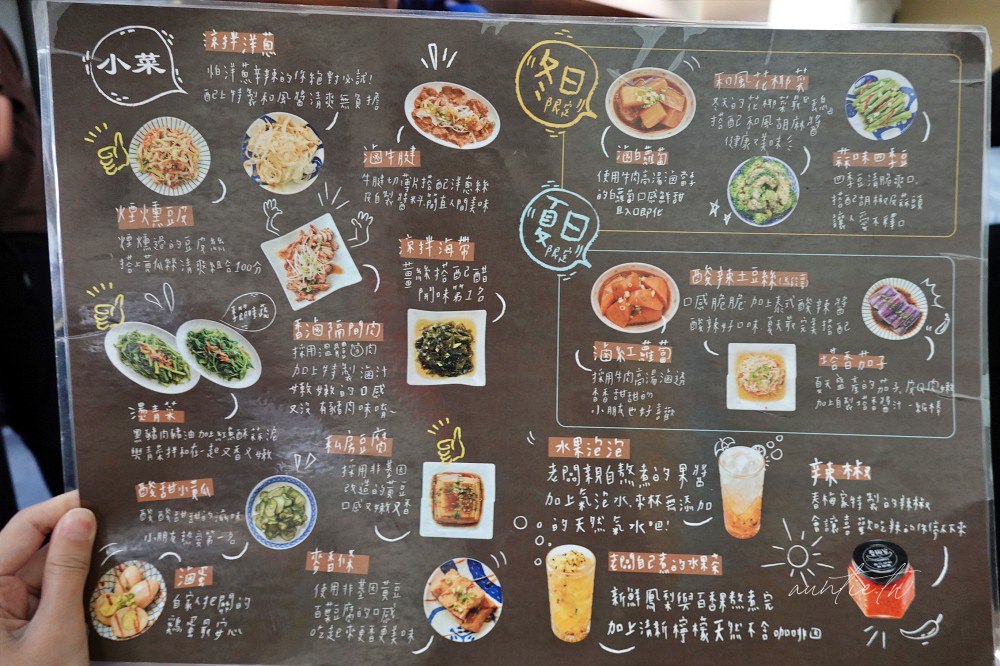 小菜
涼拌洋蔥
怕洋蔥辛辣的你絕對必試!
配上特製和風醬清爽無負擔
煙燻豆皮
煙燻過的豆皮絲
搭上黃瓜絲清爽組合100分
滷牛腱
牛腱切薄片搭配洋蔥絲
及自製醬料,簡直人間美味
涼拌海帶
薑絲搭配醋
開味第1名
香滷隔間肉
採用溫體肉
加上特製滷汁
嫩嫩的口感
又沒有豬肉味唷~
季節時蔬
燙青菜
黑豬肉豬油加上蔥酥蒜泥
與青菜拌和在一起又香又嫩
私房豆腐
採用非基因
改造的黃豆
口感又嫩又香
酸甜小黃瓜
酸酸甜甜的滋味
小朋友超愛第一名
滷蛋
自家人把關的
雞蛋最安心
麥香條
使用非基因黃豆
百葉豆腐的口感
吃起來更香更美味
冬日
限定
滷白蘿蔔
使用牛肉高湯滷製
的白蘿蔔口感鮮甜
且入口即化
和風花椰菜
冬天的花椰菜最
搭配和風胡麻醬
健康又美味
蒜味四季豆
四季豆清脆爽口
搭配胡椒及蒜頭
讓人愛不釋口
夏日
限定
滷紅蘿蔔
採用牛肉高湯滷過
香甜甜的
小朋友也好喜歡
酸辣土豆絲
口感脆脆加上泰式酸辣醬
酸辣好口味夏天最完美搭配
塔香茄子
夏天盛產的茄子,皮Q肉嫩
加上自製塔香醬汁一級棒
水果泡泡
老闆親自熬煮的果醬
加上氣泡水,來杯無添加
的天然氣水吧!
老闆自己煮的水果茶
新鮮鳳梨與百香果熬煮完
加上清新檸檬天然不含咖啡因
辣椒
春梅家特製的辣椒
會讓喜歡吃辣的你停不下來
auntie.tn